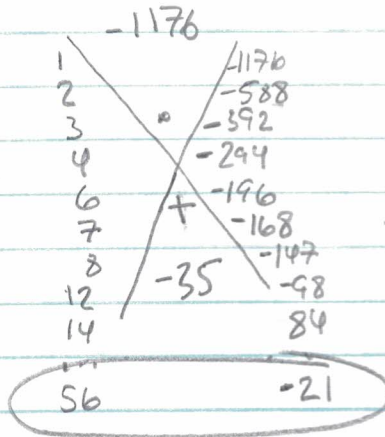 -1176
1 -1176
2 -588
3 • -392
4 -294
6 + -196
7 -168
8 -147
12 -35 -98
14 84
56 -21